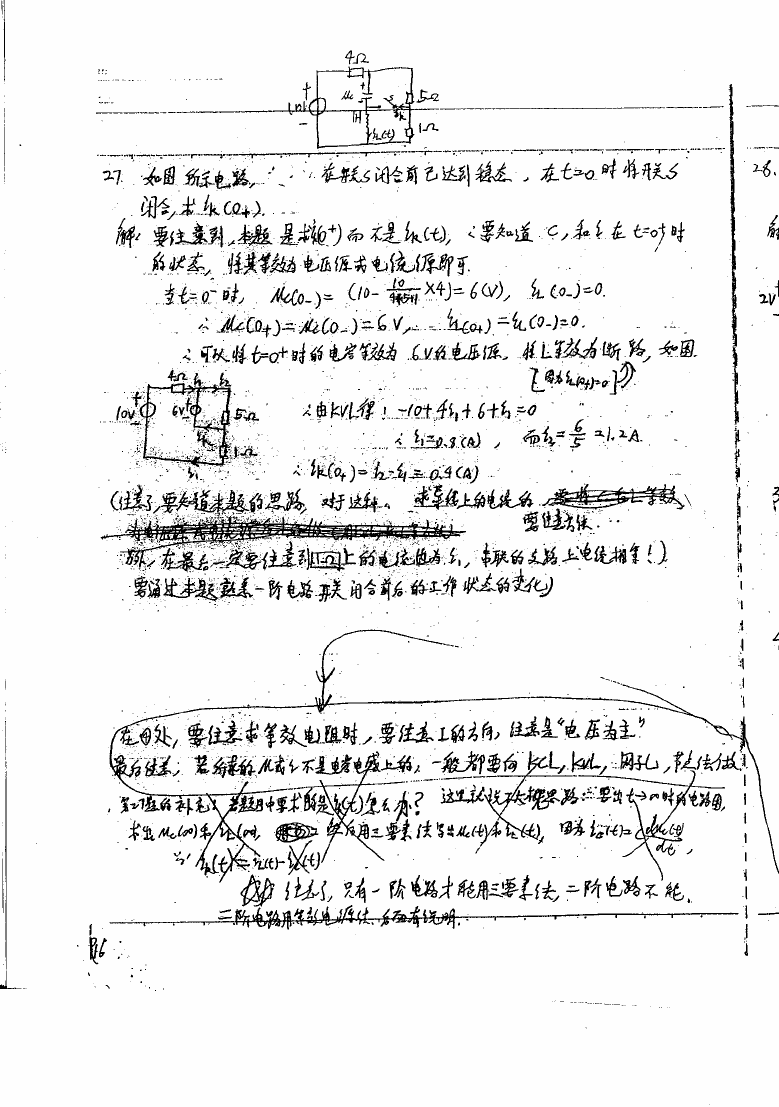 4Ω
+ Uc + S 5Ω
10V ik
- 1H iL(t) 1Ω
27. 如图所示电路, 在开关S闭合前已达到稳态, 在t=0时将开关S
闭合, 求ik(0+).
解: 要注意到, 本题是求ik(0+)而不是ik(t), ∴要知道C, 和L在t=0+时
的状态, 将其等效为电压源或电流源即可.
当t=0-时, Uc(0-)=(10-10/4+5+1×4)=6(V), iL(0-)=0.
∴ Uc(0+)=Uc(0-)=6V, iL(0+)=iL(0-)=0.
∴可以将t=0+时的电容等效为6V的电压源, 将L等效为断路, 如图
[因为iL(0+)=0]
4Ω i1 i2
10V 6V 5Ω
ik 1Ω
i1
∴由KVL得: -10+4i1+6+i1=0
∴ i1=0.8(A), 而i2=6/5=1.2A
∴ ik(0+)=i2-i1=0.4(A)
(注意了, 要知道本题的思路, 对于这种, 求导线上的电流的
要注意方法...
另外, 在最后一定要注意到1Ω上的电流值为i1, 串联的支路上电流相等!)
要通过本题熟悉一阶电路开关闭合前后的工作状态的变化)
在④处, 要注意求等效电阻时, 要注意I的方向, 注意是"电压为主"
最后注意, 若所求的U或i不是电容电感上的, 一般都要向KCL, KVL, 网孔, 节点法做
第27题的补充: 若题目中要求的是ik(t)怎么办? 这里就说下大概思路: 要求出t→∞时的电路图,
求出Uc(∞)和iL(∞), 然后用三要素法写出Uc(t)和iL(t), 因为ic(t)=C dUc(t)/dt,
∴ ik(t)=i2(t)-i1(t)
注意了, 只有一阶电路才能用三要素法, 二阶电路不能.
二阶电路用等效电源法, 后面有说明.
28.
解
2V